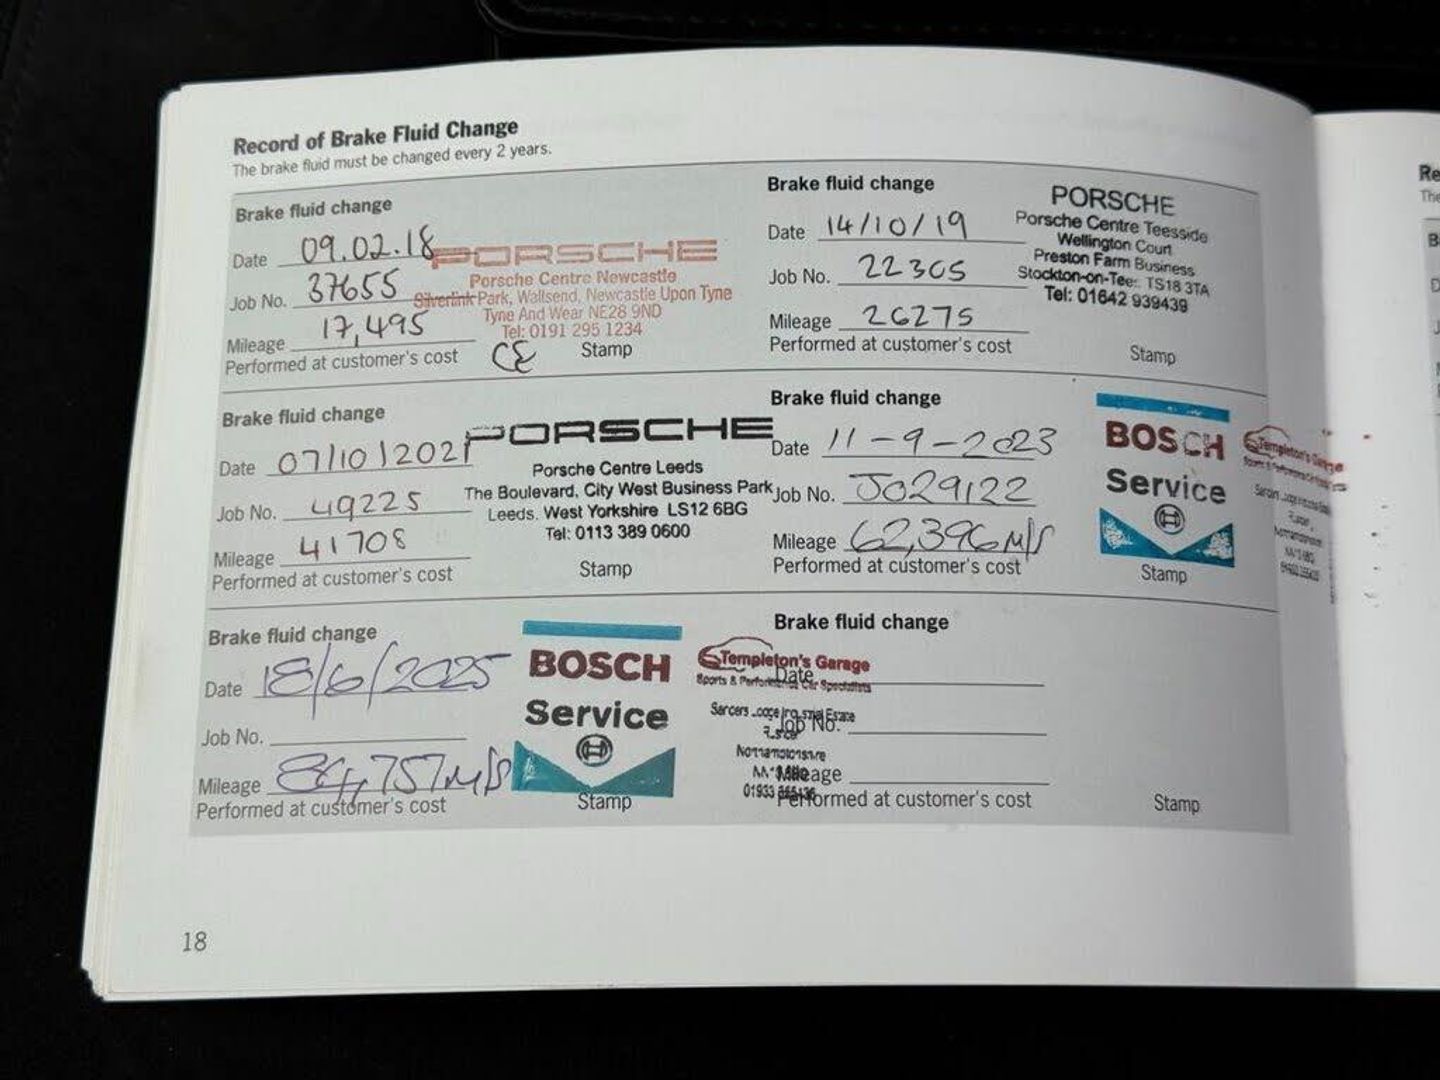 Record of Brake Fluid Change
The brake fluid must be changed every 2 years.
Brake fluid change
Date 09.02.18
Job No. 37655
Mileage 17,495
Performed at customer's cost
PORSCHE
Porsche Centre Newcastle
Silverlink Park, Wallsend, Newcastle Upon Tyne
Tyne And Wear NE28 9ND
Tel: 0191 295 1234
CE
Stamp
Brake fluid change
Date 14/10/19
Job No. 22305
Mileage 26275
Performed at customer's cost
PORSCHE
Porsche Centre Teesside
Wellington Court
Preston Farm Business
Stockton-on-Tee: TS18 3TA
Tel: 01642 939439
Stamp
Brake fluid change
Date 07/10/2021
Job No. 49225
Mileage 41708
Performed at customer's cost
PORSCHE
Porsche Centre Leeds
The Boulevard, City West Business Park
Leeds. West Yorkshire LS12 6BG
Tel: 0113 389 0600
Stamp
Brake fluid change
Date 11-9-2023
Job No. J029122
Mileage 62,396 M/S
Performed at customer's cost
BOSCH
Service
Stamp
Templeton's Garage
Brake fluid change
Date 18/6/2025
Job No.
Mileage 84,757 M/S
Performed at customer's cost
BOSCH
Service
Stamp
Templeton's Garage
Sports & Performance Car Specialists
Brake fluid change
Date
Job No.
Mileage
01933
Performed at customer's cost
Stamp
18
Re